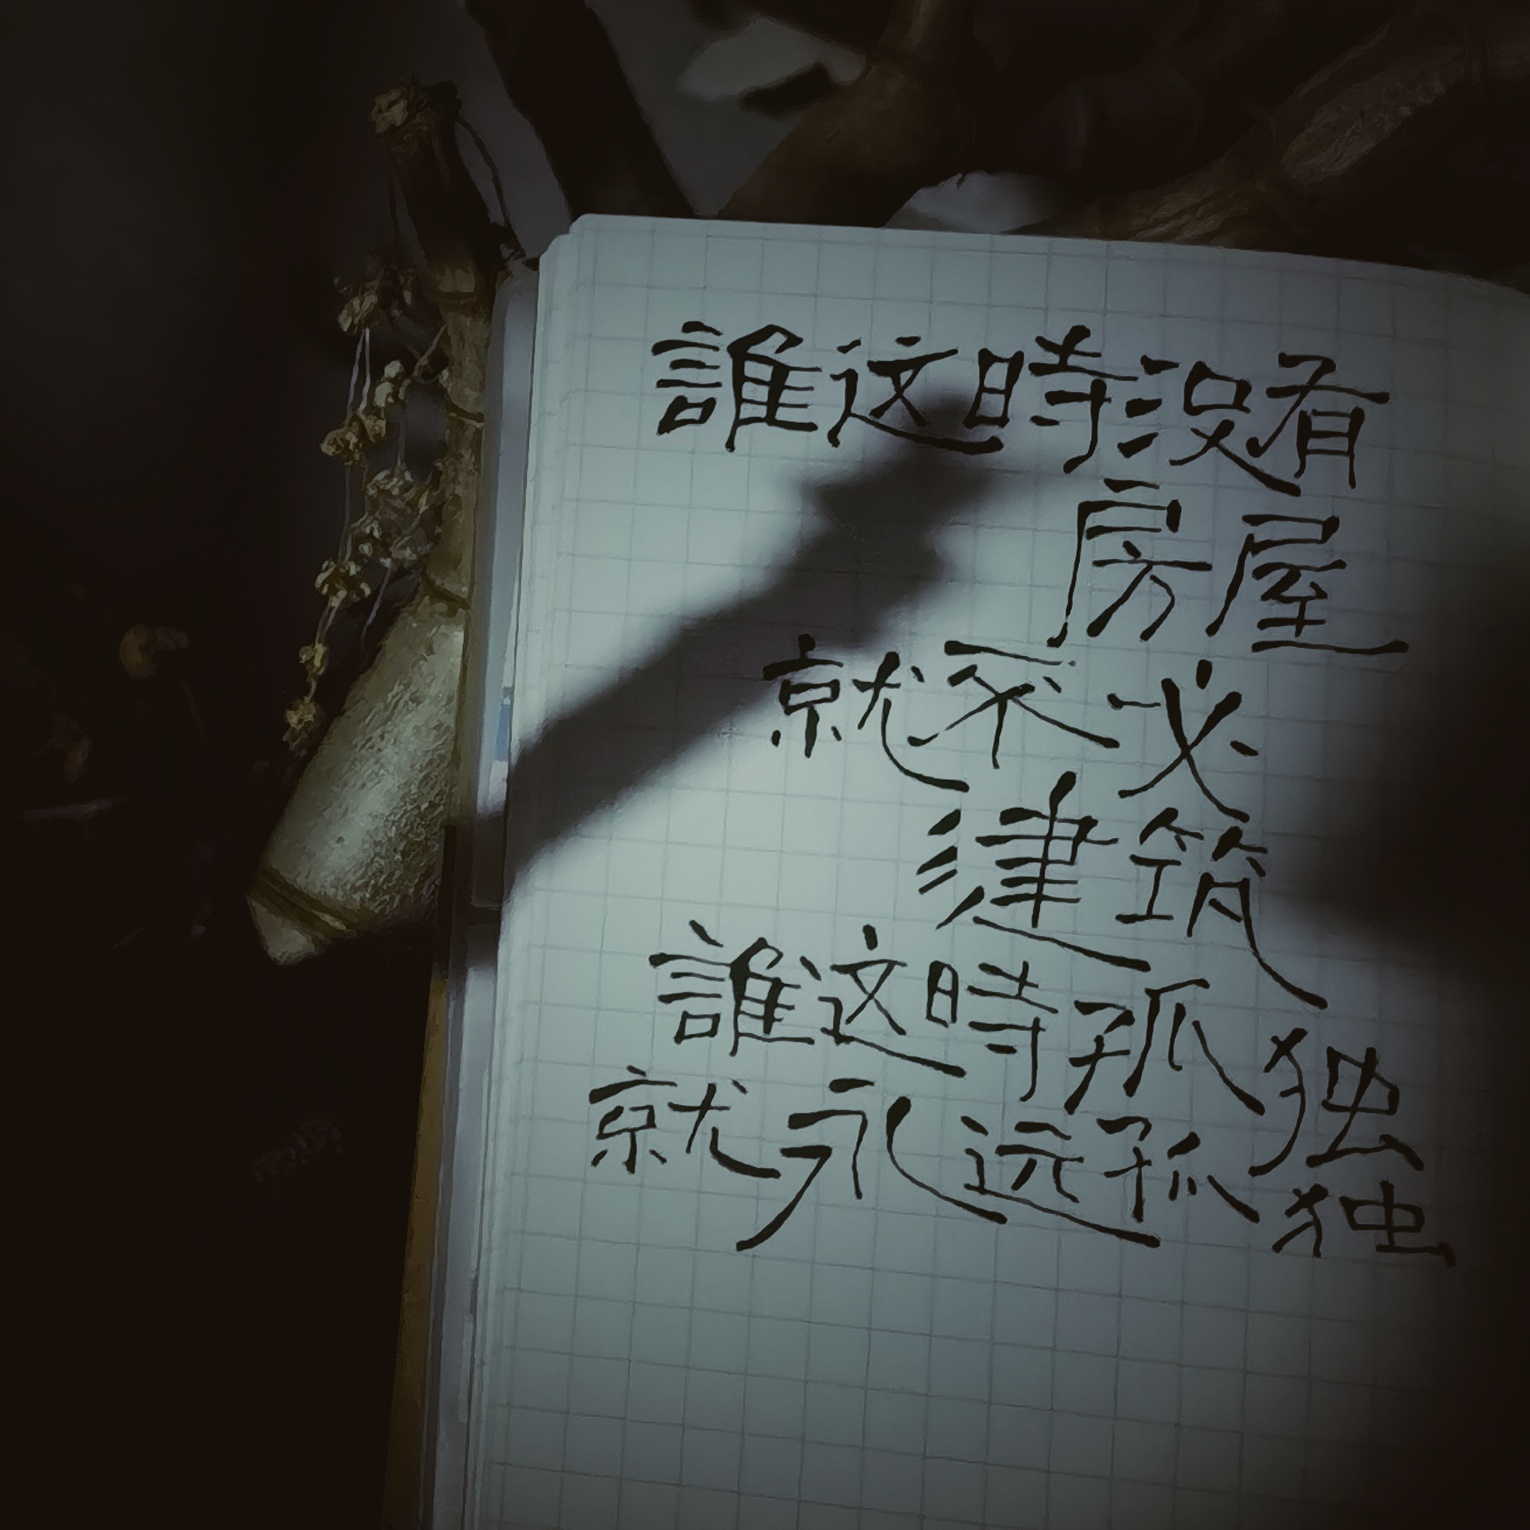 誰这時没有
房屋
就不必
建筑
誰这時孤独
就永远孤独